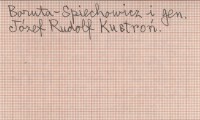 Boruta-Spiechowicz i gen.
Józef Rudolf Kustroń.